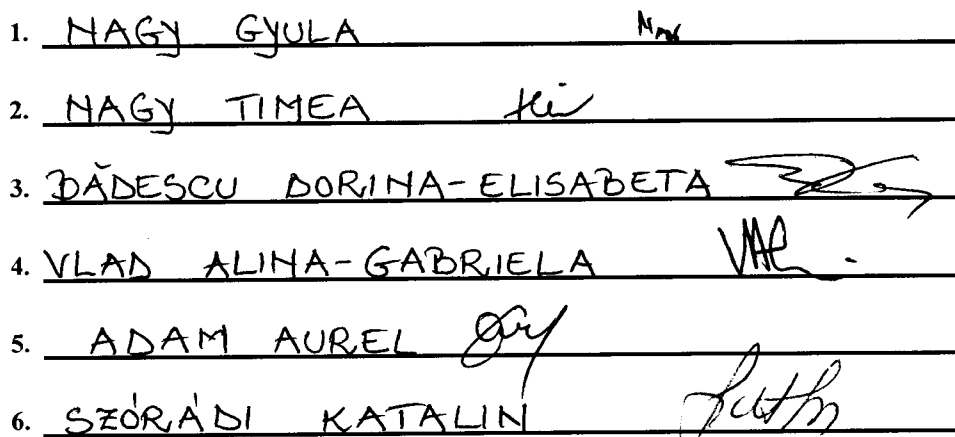 1. NAGY GYULA
2. NAGY TIMEA
3. BĂDESCU DORINA-ELISABETA
4. VLAD ALINA-GABRIELA
5. ADAM AUREL
6. SZÓRÁDI KATALIN